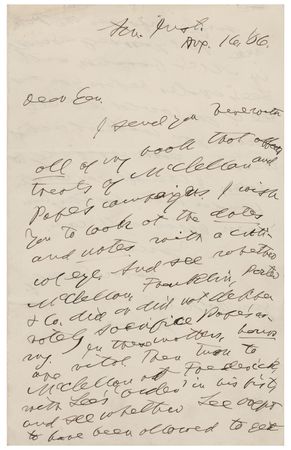 Aug. 16, '66.
Dear Gen.
I send you herewith
all of my book that
treats of McClellan and
Pope's campaigns. I wish
you to look at the dates
and notes with a criti-
cal eye. And see whether
McClellan, Franklin, Porter
& Co. did or did not deliber-
ately sacrifice Pope's ar-
my. In these matters, hours
are vital. Then turn to
McClellan at Frederick,
with Lee's "orders" in his fist,
and see whether Lee ought
to have been allowed to get